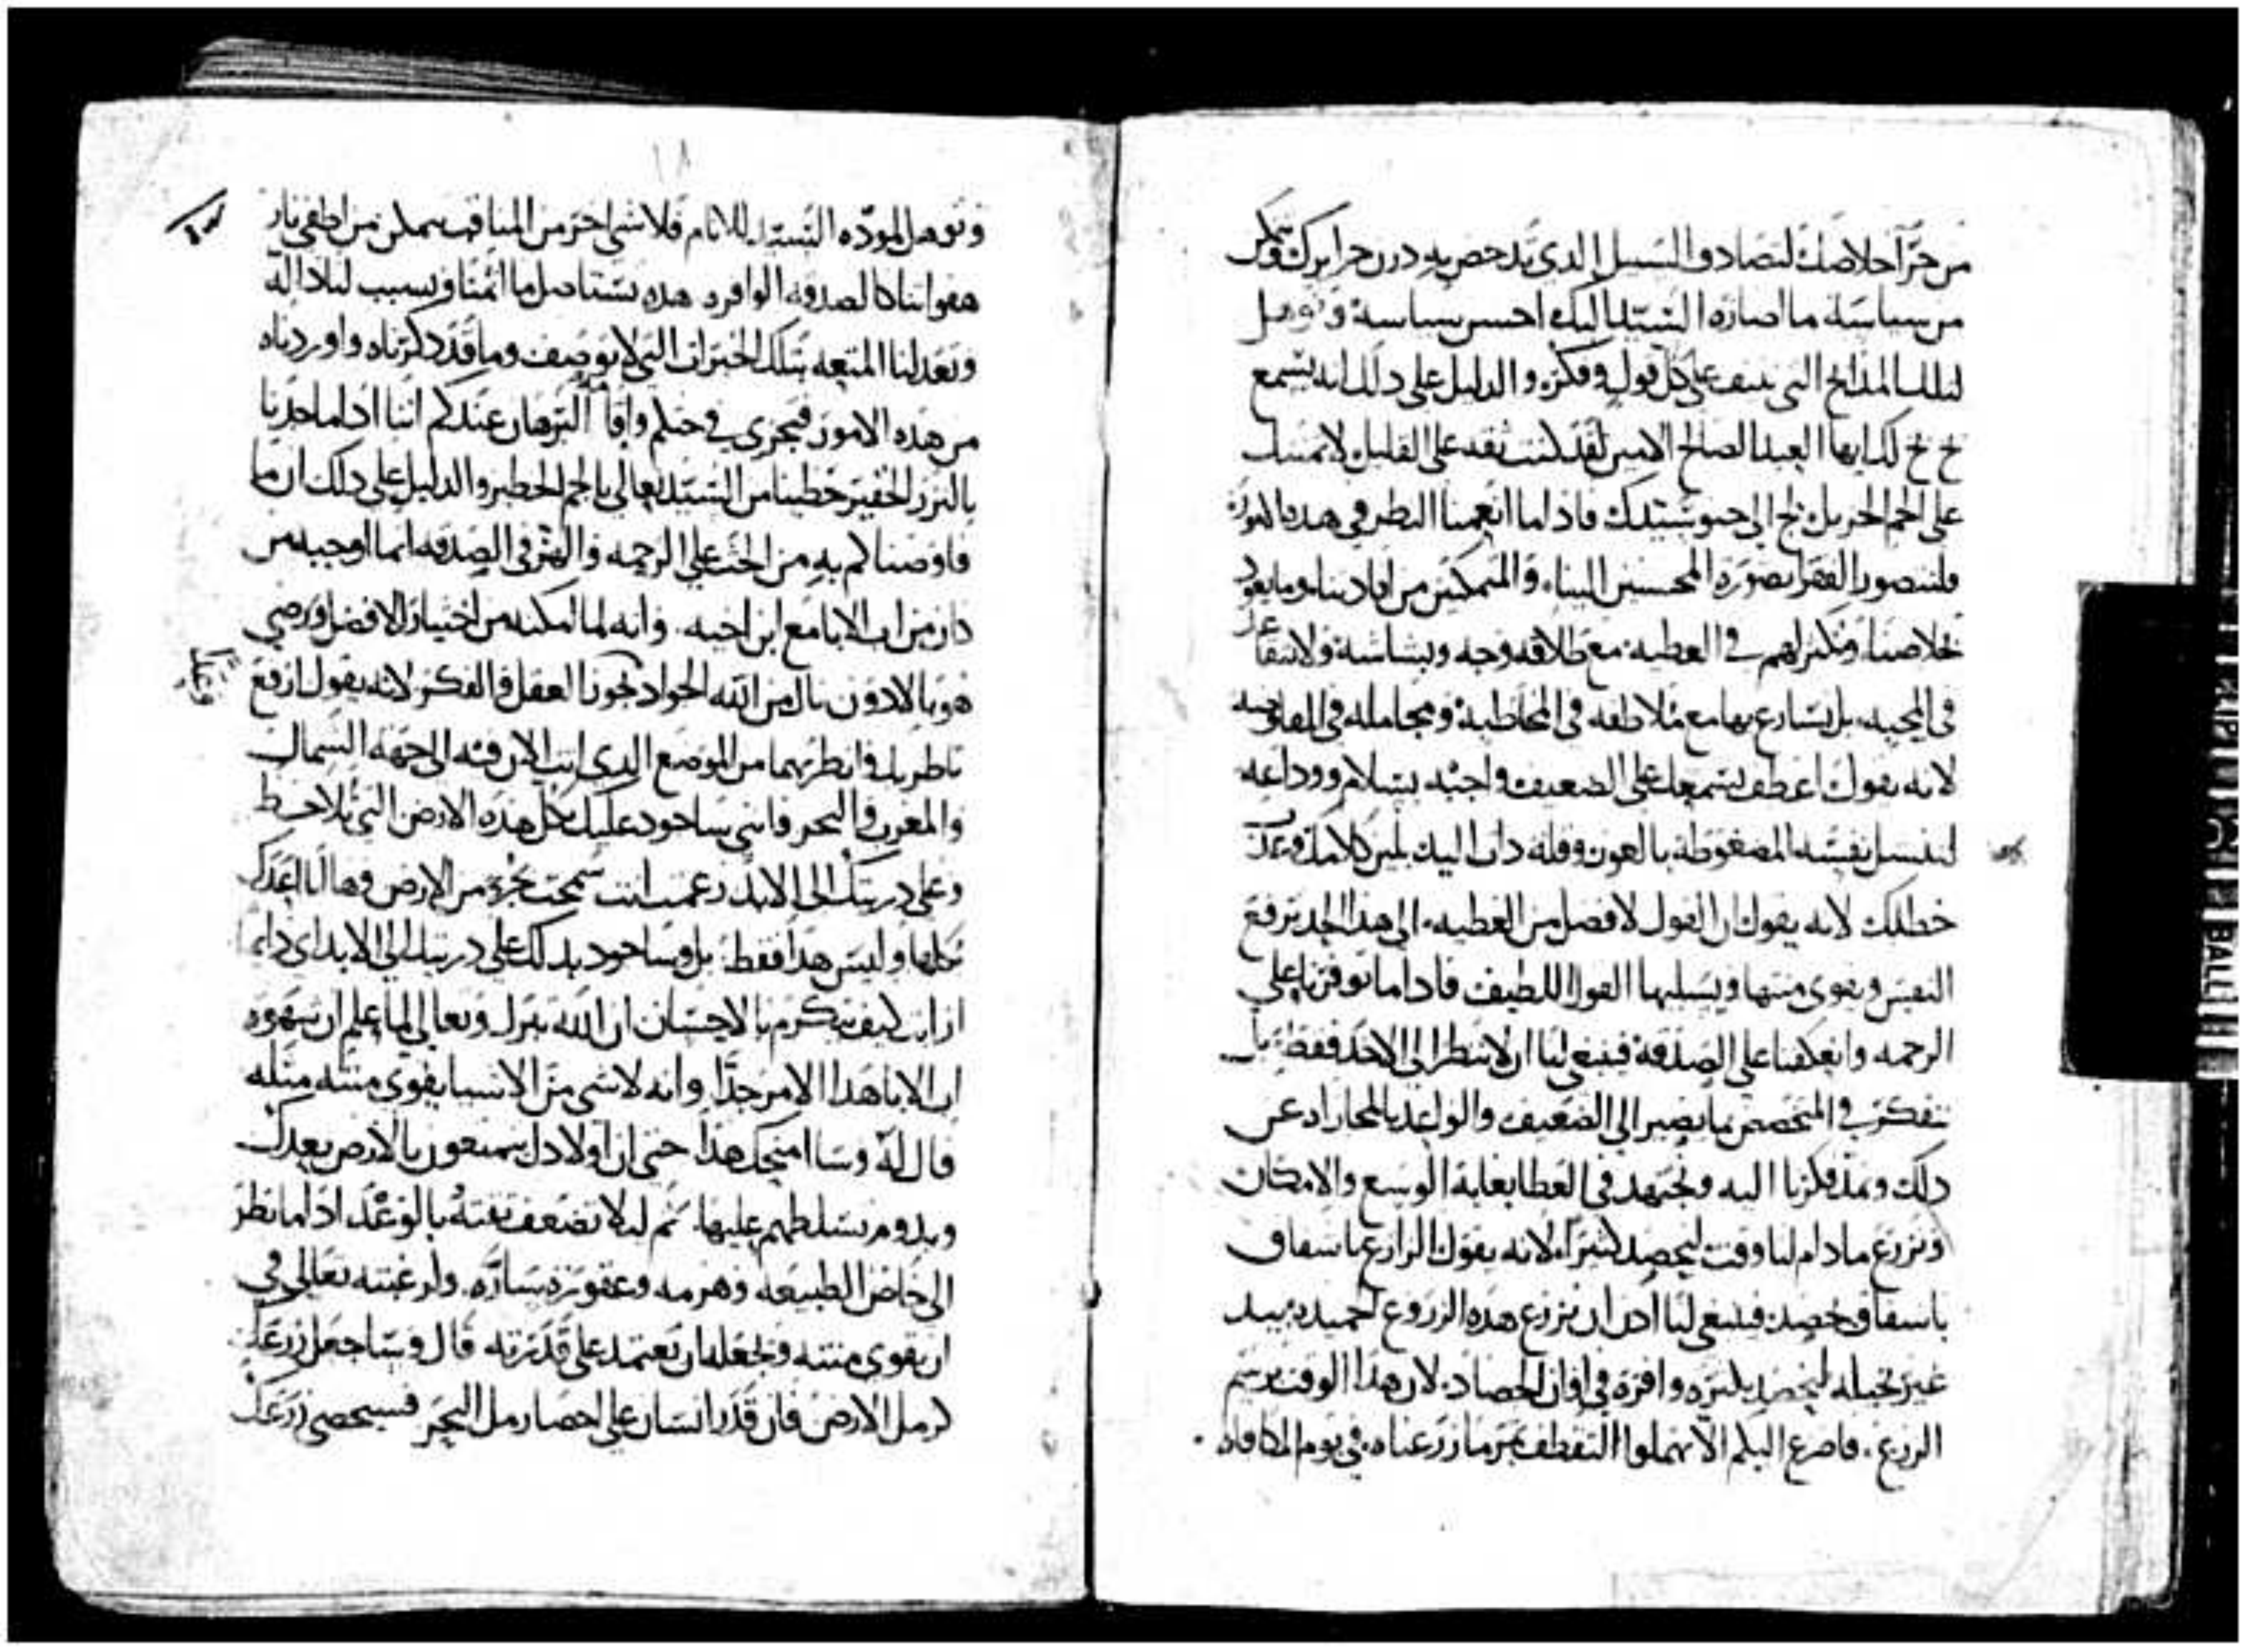 من جرّا خلاصك لتصادف السبيل الذي تدحض به درن جرايرك وتتمكن
من سياسة ما اصاره السيد اليك احسن سياسة وتوهل
لتلك المدايح التي تنيف على كل قول وفكر، والدليل على ذلك انه يسمع
خ خ لك ايها العبد الصالح الامين لقد كنت ثقه على القليل لاتمننك
على الجم الجزيل لج الى حبور سيدك فاذا ما انعمنا النظر في هذه الامور
فلنتصور الفقرا بصورة المحسنين الينا، والمتمكنين من افادتنا وما يعود
بخلاصنا، ونكثر لهم في العطيه مع طلاقه وجه وبشاشة ولا نتقاعد
في المحبه بل نسارع بها مع ملاطفه في المخاطبة ومجامله في المفاوضه
لانه يقول اعطف بسمعك على الضعيف واجبه بسلام ووداعه
لينسل نفسه المضغوطة بالعون وقله ذات اليد بلين كلامك وعذب
خطابك لانه يقول ان القول لافضل من العطيه، الى هذا الحد ترفع
النفس ويقوى منتها ويسليها القول اللطيف فاذا ما توفرنا على
الرحمه وانعكفنا على الصدقة فينبغي لنا ان لا ننظر الى الاخذ فقط بل
نتفكر في المتخصص بما يصير الى الضعيف والواعد بالمجازاه عن
ذلك ونمد فكرنا اليه ونجتهد في العطا بغاية الوسع والامكان
ونزرع ما دام لنا وقت ليحصد كثيرا، لانه يقول الزارع باشفاق
باشفاق يحصد، فينبغي لنا اذن ان نزرع هذه الزروع الحميده بيد
غير بخيله لنحصد بكثره وافره في اوان الحصاد، لان هذا الوقت برسم
الزرع. فاضرع اليكم الّا تهملوا التقطف ثمر ما زرعناه في يوم المكافاه
١٨
وتوهل لمودّه السيد للانام فلا شي اخر من المناقب يتمكن من اطفى نار
هفواتنا كالصدقه الوافره هذه تستاصل ما اثمنا وتسبب لنا دالّه
وتعد لنا المتعه بتلك الخيرات التي لا توصف وما قد ذكرناه واوردناه
من هذه الامور فيجزي في حثكم واقامة البرهان عندكم اننا اذا ما جدنا
بالنزر الحقير حظينا من السيد تعالى بالجم الخطير والدليل على ذلك ان ما
فاوضناكم به من الحث على الرحمه والهش في الصدقه انما اوجبه من
دار من اب الابا مع ابن اخيه. وانه لما امكنه من اختيار الافضل ورضي
هو بالادون نال من الله الجواد بجودنا العقل والفكر لانه يقول ارفع
ناظريك وانظر بهما من الموضع الذي انت الان فيه الى جهة الشمال
والمغرب والبحر فانني ساجود عليك بكل هذه الارض التي تلاحظ
وعلى ذريتك الى الابد زعمت انت سمحت بجزء من الارض وها انا اعدك
بكلها وليس هذا فقط بل وساجود بذلك على ذريتك الى الابد اي دايما
ارايت كيف يتكرم بالاحسان ان الله تبارك وتعالى لما علم ان شهوه
اب الابا هذا الامر جدّا وانه لا شي من الاشيا يقوى منته مثله
قال له وسا امنحك هذا حتى ان اولادك يتمتعون بالارض بعدك
ويدوم تسلطهم عليها، ثم ليلا تضعف نفسه بالوعد اذا ما نظر
الى خاص الطبيعه وهرمه وعقوره ساره، ولرغبته تعالى في
ان يقوى منته ويجعله ان يعتمد على قدرته قال وساجعل زرعك
كرمل الارض فان قدر انسان على احصا رمل البحر فسيحصى زرعك